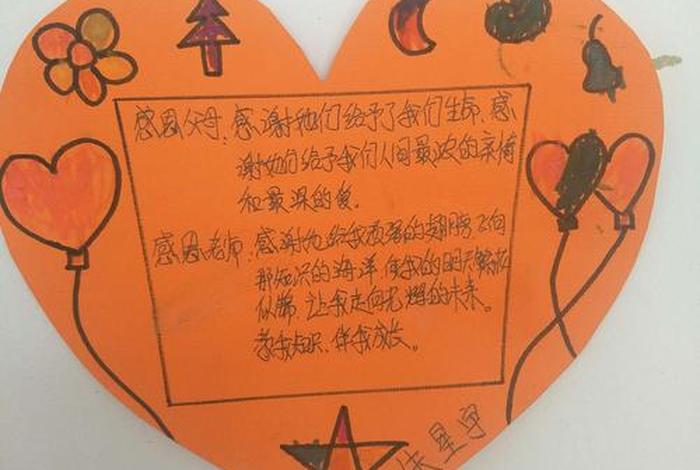 感恩父母：感谢他们给予了我们生命、感
谢她们给予我们人间最浓的亲情
和最深的爱。
感恩老师：感谢为给我顽强的翅膀飞向
那知识的海洋 使我的明天繁花
似锦，让我走向光辉的未来。
教我知识，伴我成长。
星宇